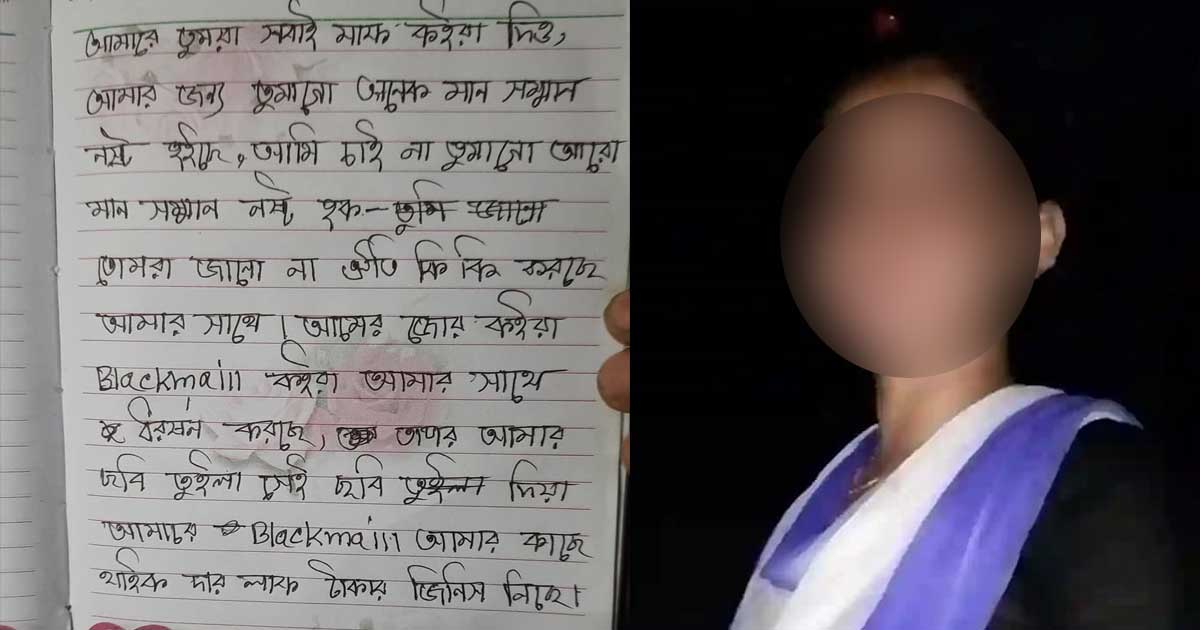 আমারে তুমরা সবাই মাফ কইরা দিও,
আমার জন্য তুমাগো অনেক মান সম্মান
নষ্ট হইছে, আমি চাই না তুমাগো আরো
মান সম্মান নষ্ট হক – তুমি জানো
তোমরা জানো না কি কি করছে
আমার সাথে। আমের জোর কইরা
Blackmaill কইরা আমার সাথে
করছে, তারপর আমার
ছবি তুইলা সেই ছবি তুইলা দিয়া
আমারে Blackmaill আমার কাছে
থাইক লাক টাকার জিনিস নিছে।